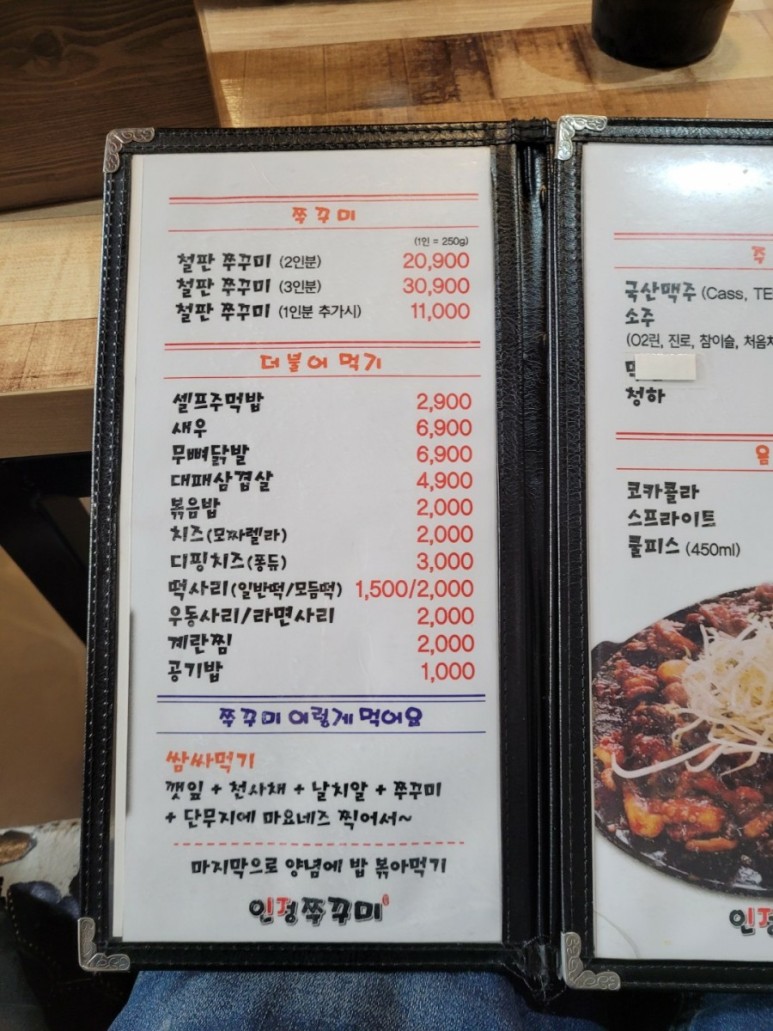 쭈꾸미
(1인 = 250g)
철판 쭈꾸미 (2인분) 20,900
철판 쭈꾸미 (3인분) 30,900
철판 쭈꾸미 (1인분 추가시) 11,000
더불어 먹기
셀프주먹밥 2,900
새우 6,900
무뼈닭발 6,900
대패삼겹살 4,900
볶음밥 2,000
치즈(모짜렐라) 2,000
디핑치즈(퐁듀) 3,000
떡사리(일반떡/모듬떡) 1,500/2,000
우동사리/라면사리 2,000
계란찜 2,000
공기밥 1,000
쭈꾸미 이렇게 먹어요
쌈싸먹기
깻잎 + 천사채 + 날치알 + 쭈꾸미
+ 단무지에 마요네즈 찍어서~
마지막으로 양념에 밥 볶아먹기
인정쭈꾸미
주
국산맥주 (Cass, TE
소주
(O2린, 진로, 참이슬, 처음처
청하
음
코카콜라
스프라이트
쿨피스 (450ml)
인정